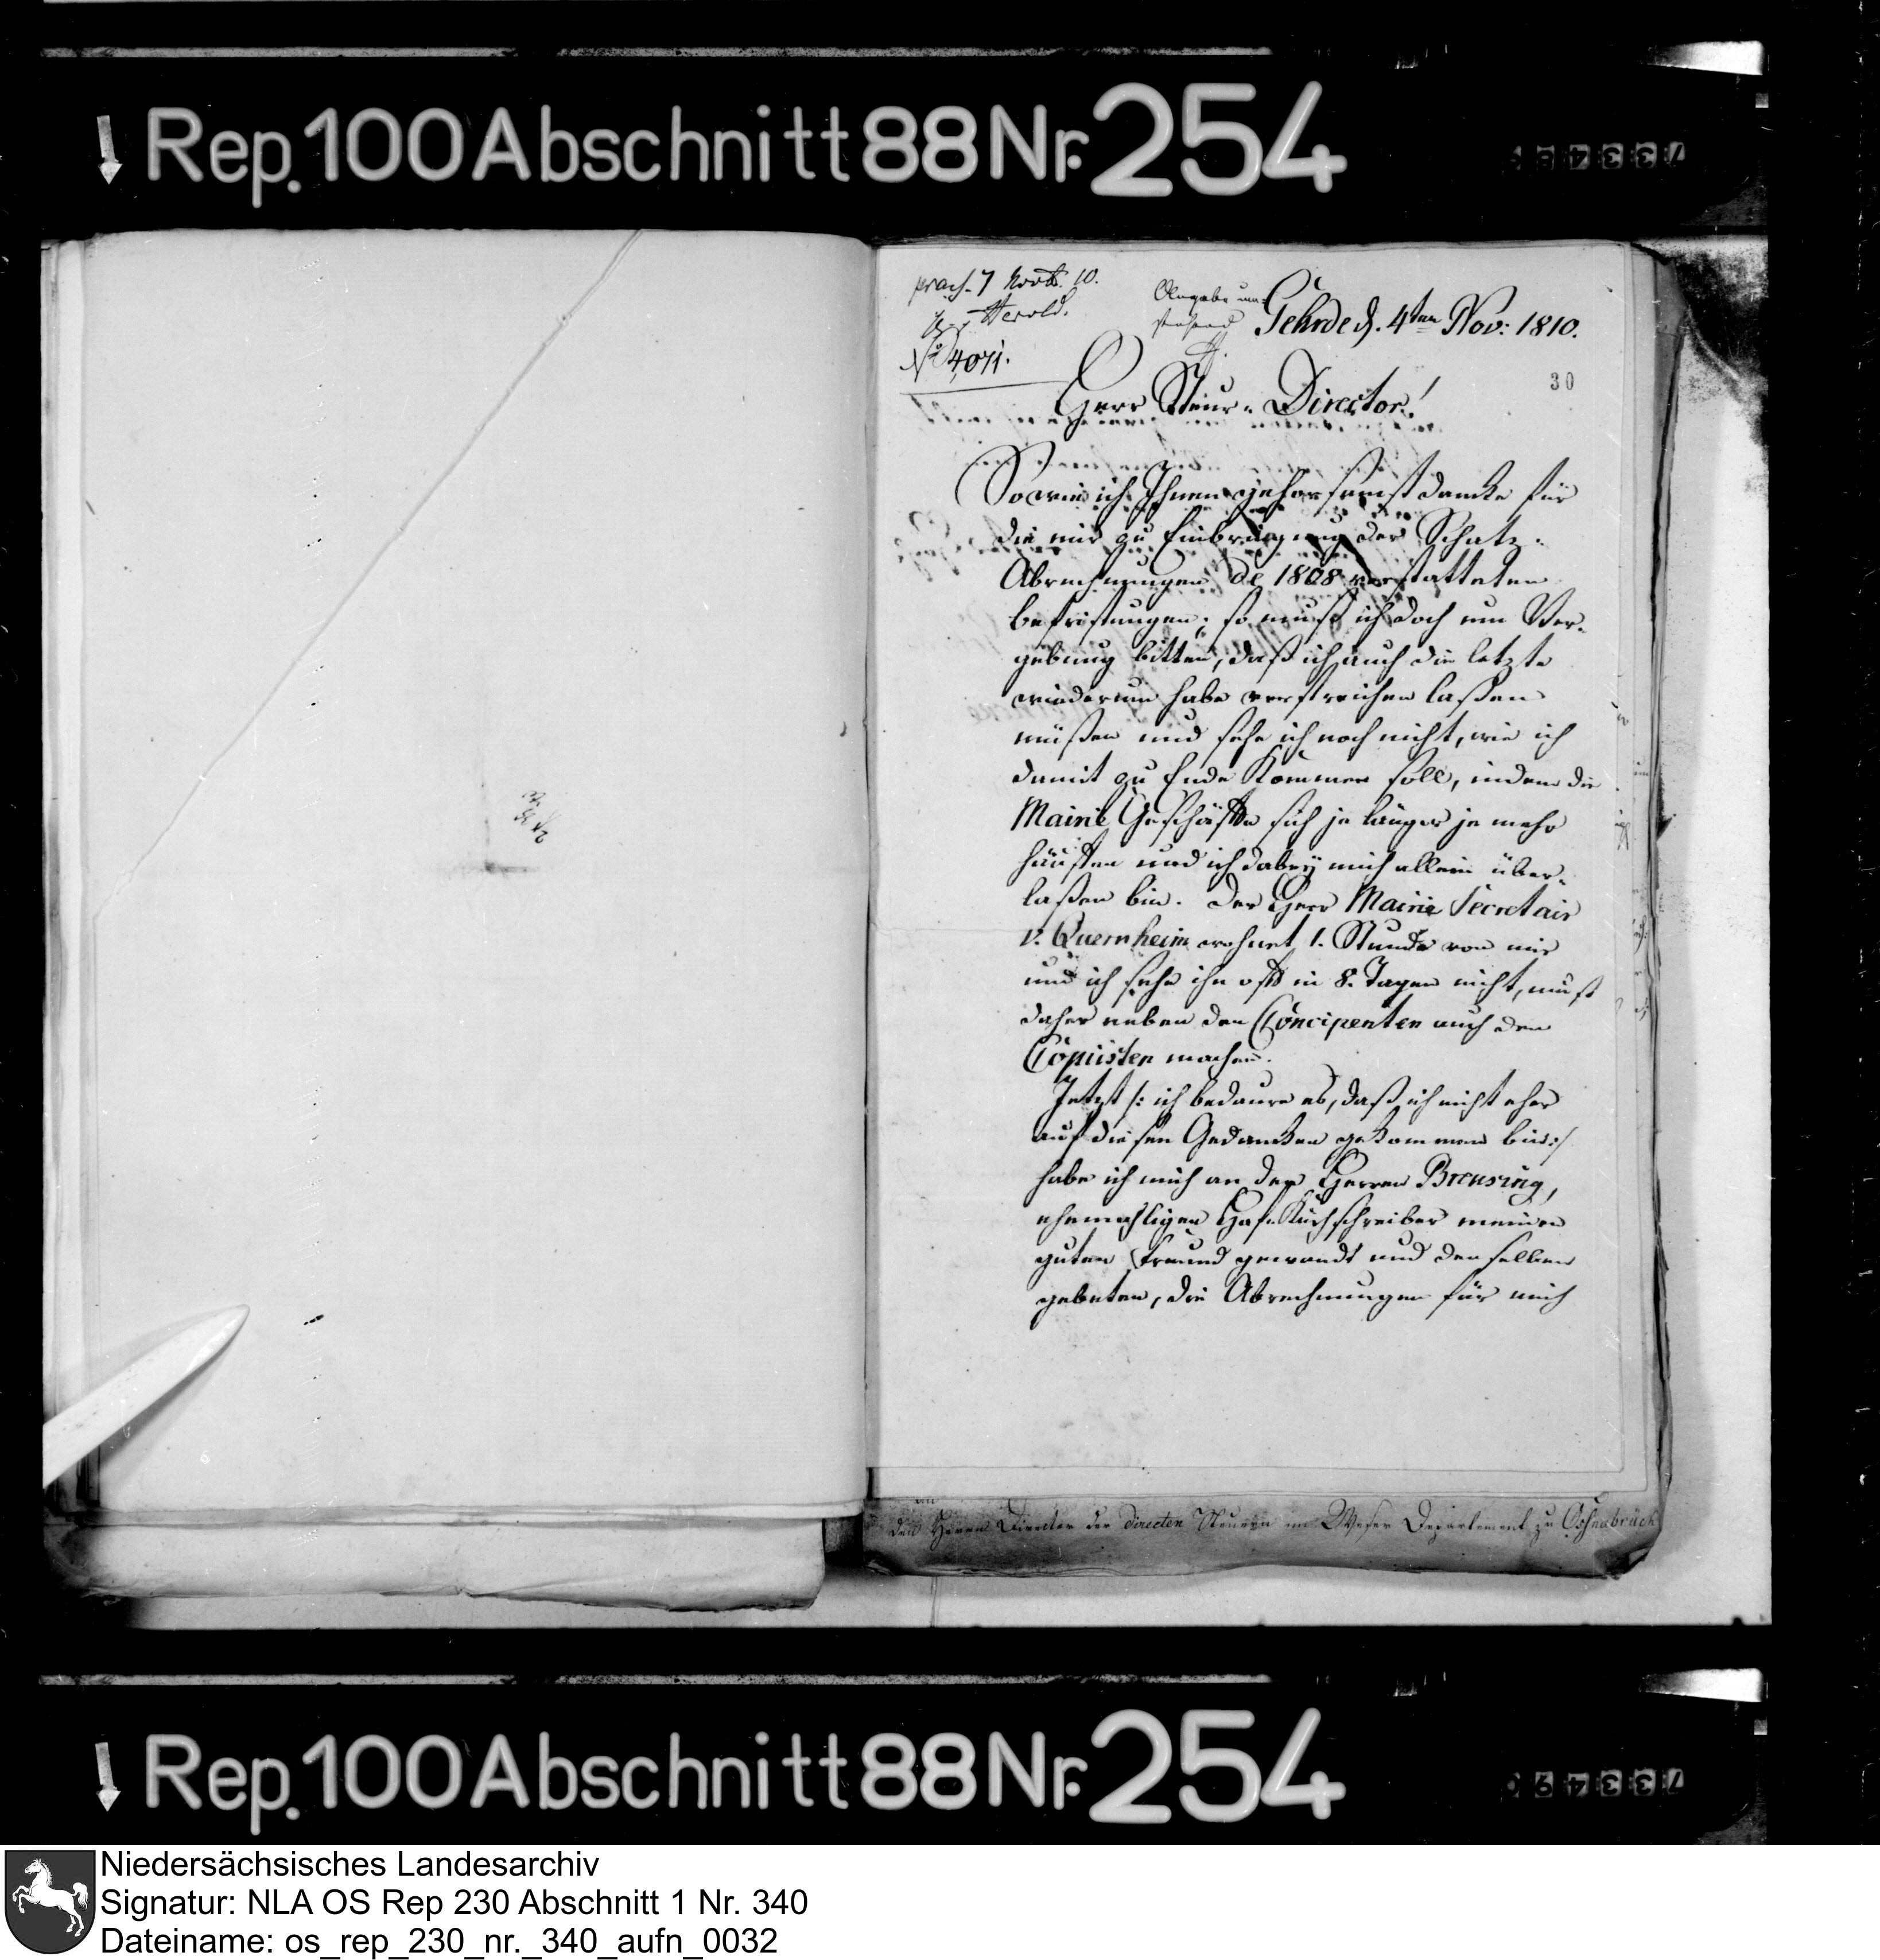 Rep. 100 Abschnitt 88 Nr. 254
praes. 7 Novb. 10.
Herold.
No 4071.
Angabe um-
stehend
Gehrde d. 4ten Nov: 1810.
30
Herr Steur-Director!
So wie ich Ihnen gehorsamst dancke für
die mir zu Einbringung der Schatz-
Abrechnungen de 1808 verstatteten
befristungen; so muß ich doch um Ver-
gebung bitten, daß ich auch die letzte
wiederum habe verstreichen laßen
müßen und sehe ich noch nicht, wie ich
damit zu Ende kommen soll, indem die
Mairie Geschäffte sich je länger je mehr
häuffen und ich dabey mich allein über-
laßen bin. Der Herr Mairie Secretair
v. Quernheim wohnet 1. Stunde von mir
und ich sehe ihn offt in 8. Tagen nicht, muß
daher neben den Concipenten auch den
Copiisten machen.
Jetzt /: ich bedaure es, daß ich nicht eher
auf diesen Gedancken gekommen bin :/
habe ich mich an den Herren Breusing,
ehemahligen Hof-Küchschreiber meinen
guten Freund gewandt und denselben
gebeten, die Abrechnungen für mich
an
den Herrn Director der directen Steuern im Weser Departement zu Osnabrück
Rep. 100 Abschnitt 88 Nr. 254
Niedersächsisches Landesarchiv
Signatur: NLA OS Rep 230 Abschnitt 1 Nr. 340
Dateiname: os_rep_230_nr._340_aufn_0032